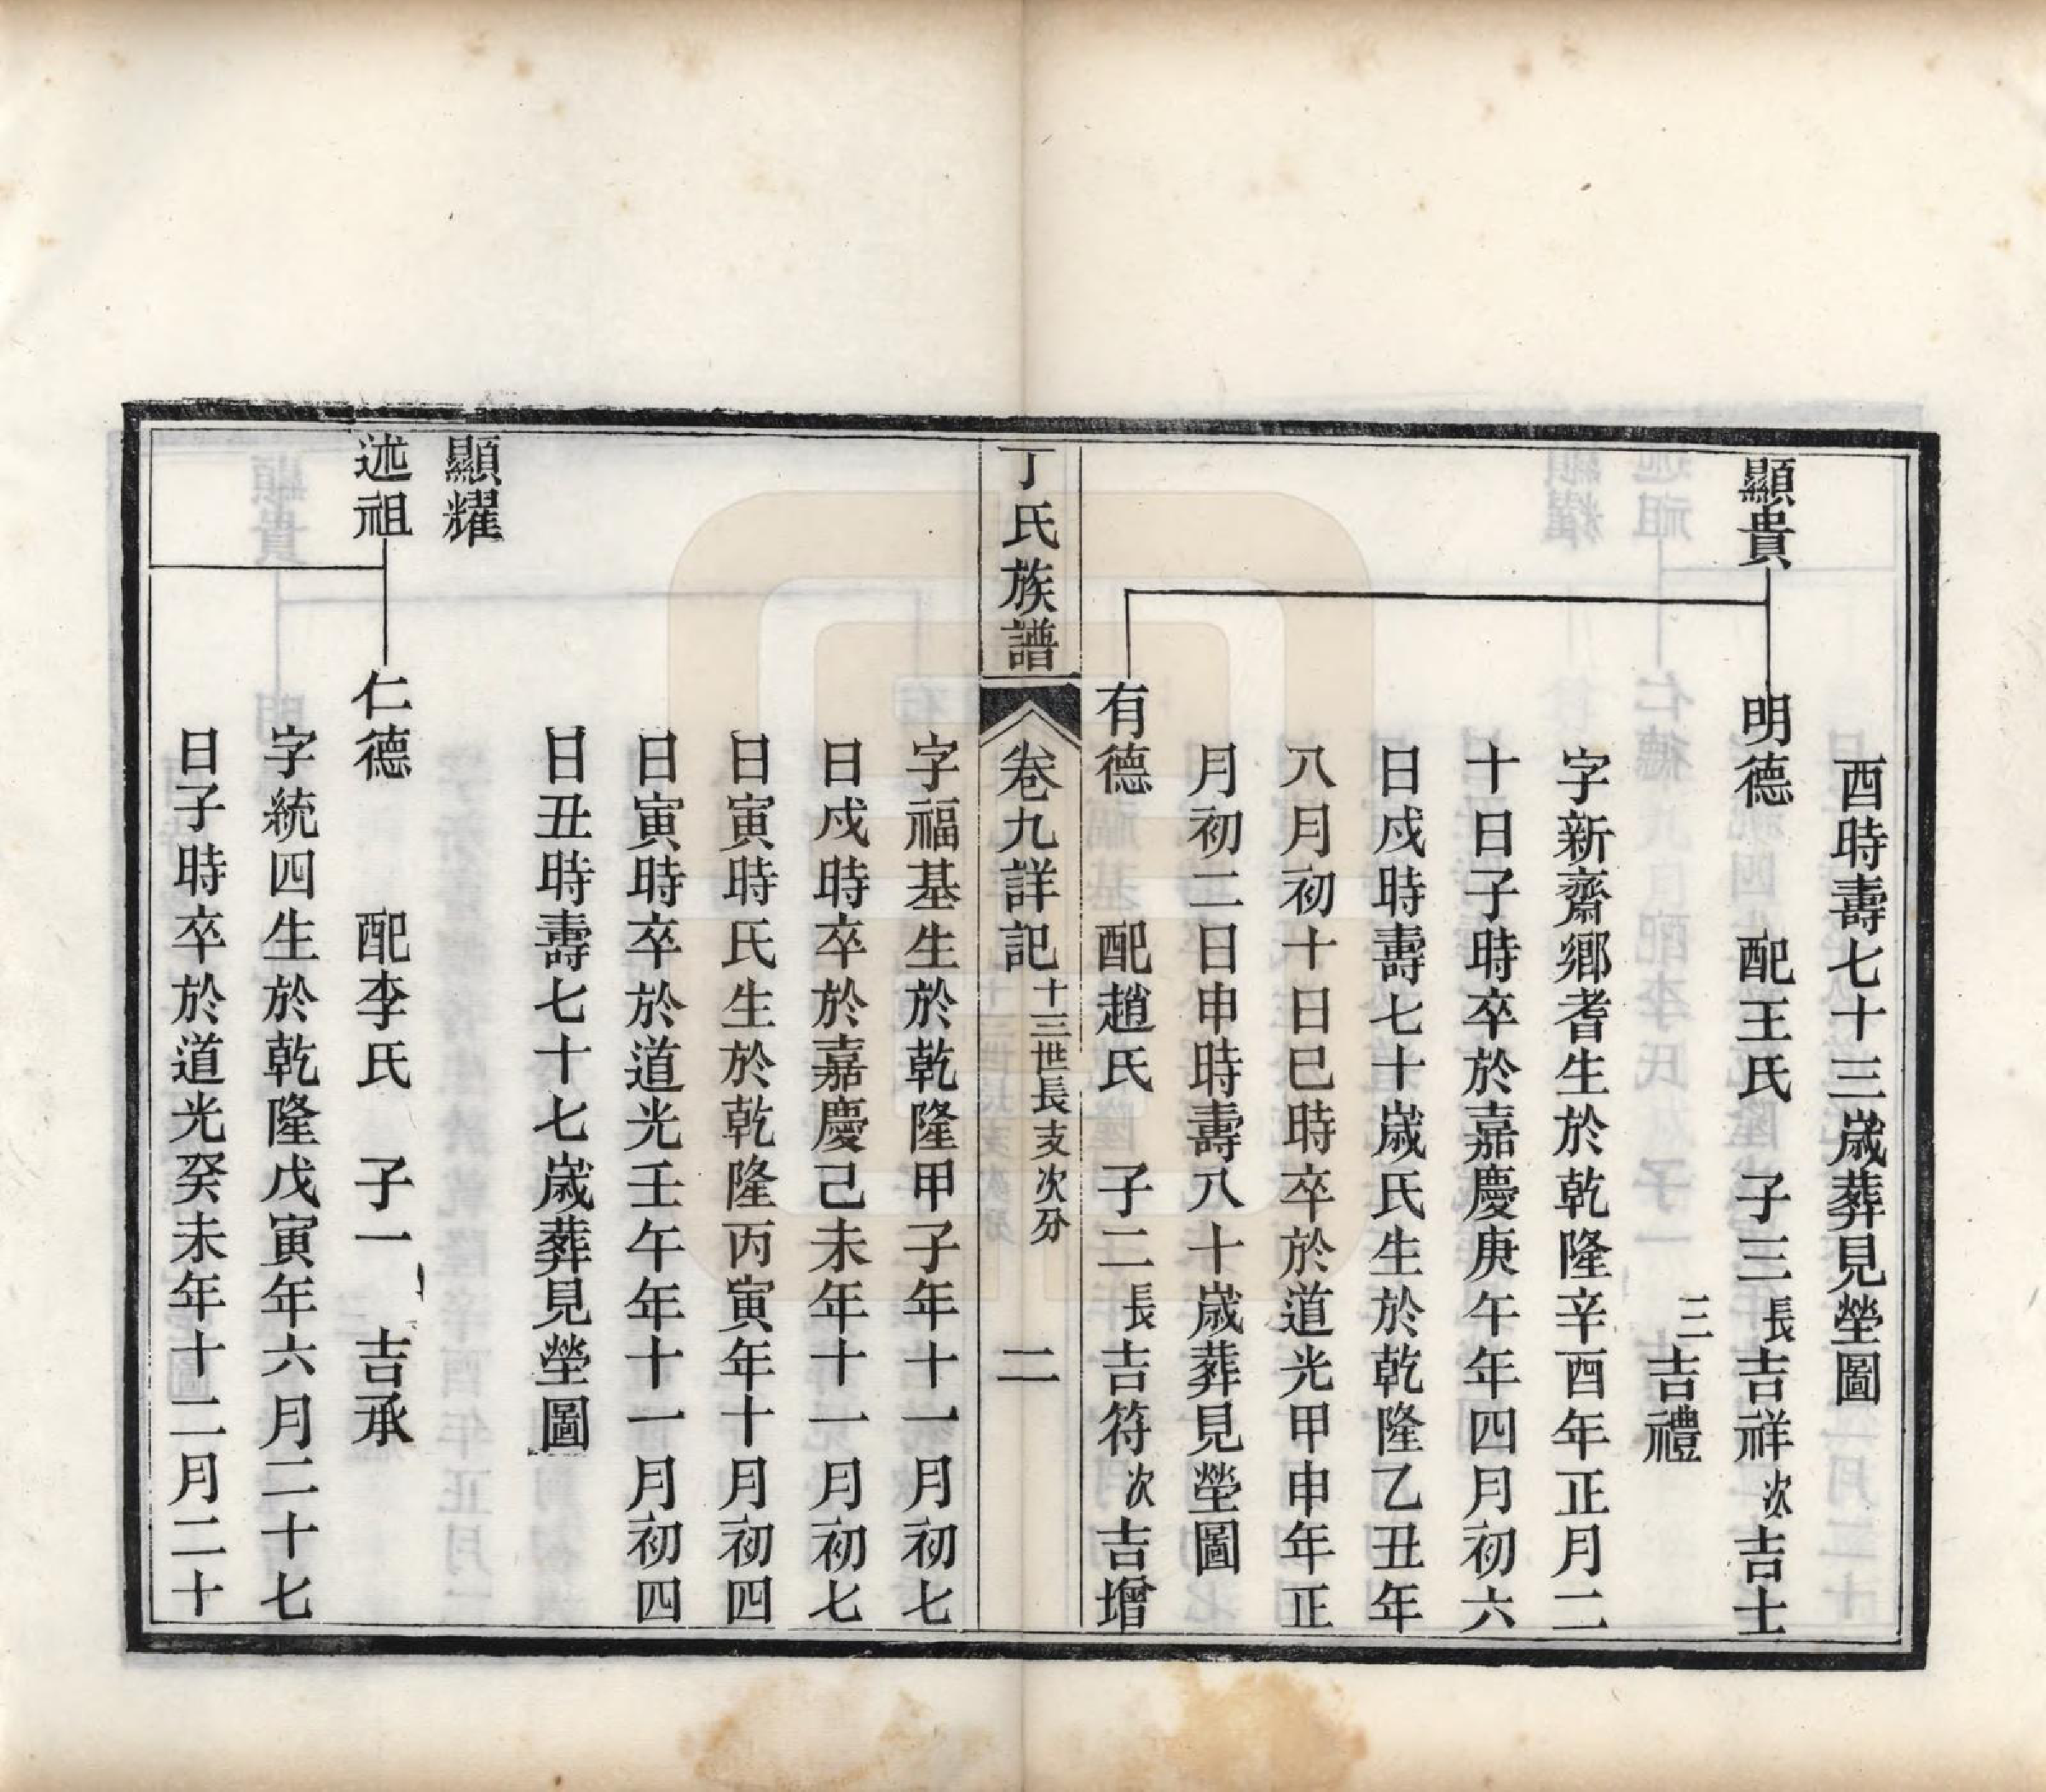 酉時壽七十三歲葬見塋圖
顯貴 明德 配王氏 子三長吉祥次吉士
三吉禮
字新齋鄉耆生於乾隆辛酉年正月二
十日子時卒於嘉慶庚午年四月初六
日戍時壽七十歲氏生於乾隆乙丑年
八月初十日巳時卒於道光甲申年正
月初二日申時壽八十歲葬見塋圖
有德 配趙氏 子二長吉符次吉增
丁氏族譜 卷九詳記 十三世長支次分 二
字福基生於乾隆甲子年十一月初七
日戍時卒於嘉慶己未年十一月初七
日寅時氏生於乾隆丙寅年十月初四
日寅時卒於道光壬午年十一月初四
日丑時壽七十七歲葬見塋圖
顯耀
述祖 仁德 配李氏 子一 吉承
字統四生於乾隆戊寅年六月二十七
日子時卒於道光癸未年十二月二十